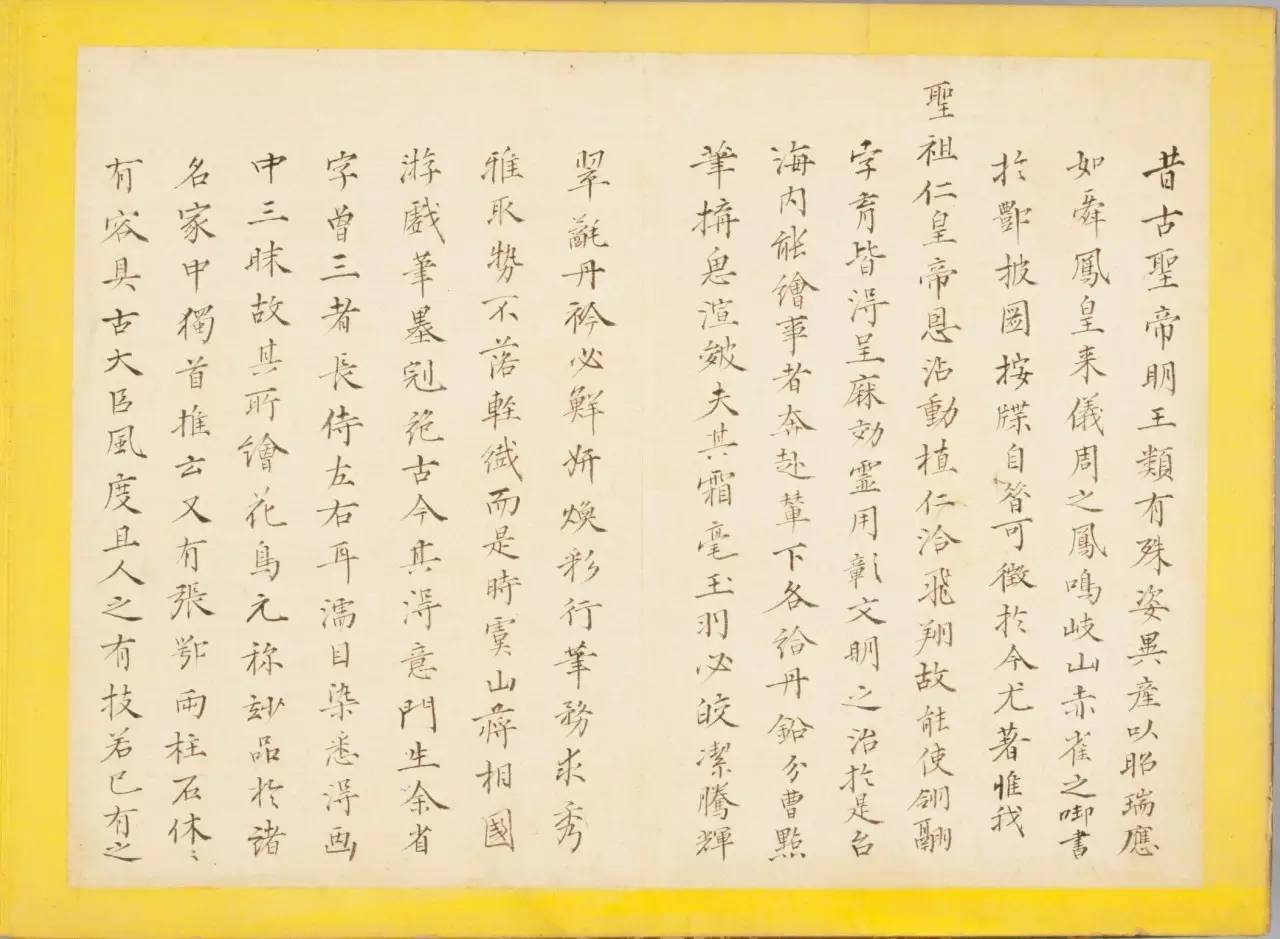 昔古聖帝明王類有殊姿異產以昭瑞應
如舜鳳皇来儀周之鳳鳴岐山赤雀之啣書
於酆披圖按牒自昝可徵於今尤著惟我
聖祖仁皇帝恩沾動植仁洽飛翔故能使翎翮
字育皆淂呈庥効靈用彰文明之治於是台
海内能繪事者奔赴輦下各給丹鉛分曹點
筆擠思渲皴夫其霜毫玉羽必皎潔騰輝
翠氄丹衿必鮮妍煥彩行筆務求秀
雅取勢不落輕纎而是時虞山蔣相國
游戲筆墨冠絶古今其淂意門生余省
字曾三者長侍左右耳濡目染悉淂画
中三昧故其所繪花鳥尤称玅品於諸
名家中獨首推云又有張鄂兩柱石休〻
有容具古大臣風度且人之有技若已有之